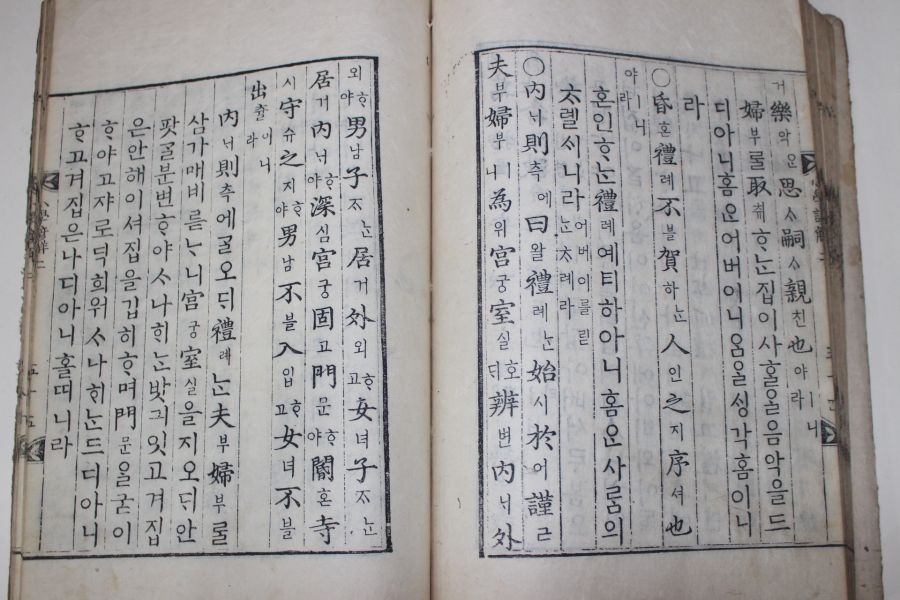 거樂악은思ᄉᆞ嗣ᄉᆞ親친也야ㅣ니라
婦부ᄅᆞᆯ取ᄎᆔᄒᆞᄂᆞᆫ집이사ᄒᆞᆯ을음악을드
디아니홈오어버이니옴을ᄉᆡᆼ각홈이니
라
○昏혼禮례不블賀하ᄂᆞᆫ人인之지序셔也
야ㅣ니라
혼인ᄒᆞᄂᆞᆫ禮례예티하아니홈ᄋᆞᆫ사ᄅᆞᆷ의
ᄎᆞ렐시니라어버이를ᄎᆞ례라
○內ᄂᆡ則측에曰왈禮례ᄂᆞᆫ始시於어謹근
夫부婦부ㅣ니為위宮궁室실호ᄃᆡ辨변內ᄂᆡ外
외ᄒᆞ야男남子ᄌᆞᄂᆞᆫ居거外외ᄒᆞ고女녀子ᄌᆞᄂᆞᆫ
居거內ᄂᆡᄒᆞ야深심宮궁固고門문ᄒᆞ야閽혼寺
시守슈之지ᄒᆞ야男남不블入입ᄒᆞ고女녀不블
出츌이니라
內ᄂᆡ則측에ᄀᆞᆯ오ᄃᆡ禮례ᄂᆞᆫ夫부婦부ᄅᆞᆯ
삼가매비르ᄂᆞ니宮궁室실을지오ᄃᆡ안
팟ᄀᆞᆯ분변ᄒᆞ야ᄉᆞ나ᄒᆡᄂᆞᆫ밧긔잇고겨집
은안해이셔집을깁히ᄒᆞ며門문을굳이
ᄒᆞ야고쟈로딕희워ᄉᆞ나ᄒᆡᄂᆞᆫ드디아니
ᄒᆞ고겨집은나디아니홀띠니라